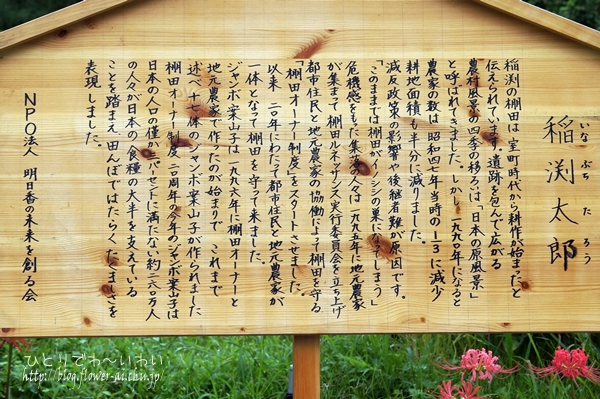 稲渕太郎
いなぶちたろう
稲渕の棚田は、室町時代から耕作が始まったと
伝えられています。遺跡を包んで広がる
農村風景の四季の移ろいは、「日本の原風景」
と呼ばれてきました。しかし、一九九〇年になると
農家の数は、昭和四七年当時の1-3に減少
耕地面積も半分に減りました。
減反政策の影響や後継者難が原因です。
「このままでは棚田がイノシシの巣になってしまう」
危機感をもった集落の人々は、一九九五年に地元農家
が集まって棚田ルネッサンス実行委員会を立ち上げ
都市住民と地元農家の協働によって棚田を守る
「棚田オーナー制度」をスタートさせました。
以来、二〇年にわたって都市住民と地元農家が
一体となって棚田を守って来ました。
ジャンボ案山子は一九九六年に棚田オーナーと
地元農家で作ったのが始まりで、これまで
述べ十七体のジャンボ案山子が作られました
棚田オーナー制度二〇周年の今年のジャンボ案山子は
日本の人口の僅か二パーセントに満たない約二六〇万人
の人々が日本の食糧の大半を支えている
ことを踏まえ、田んぼではたらく、たくましさを
表現しました。
NPO法人 明日香の未来を創る会
ひとりでわ〜いわい
http://blog.flower-aichu.jp/